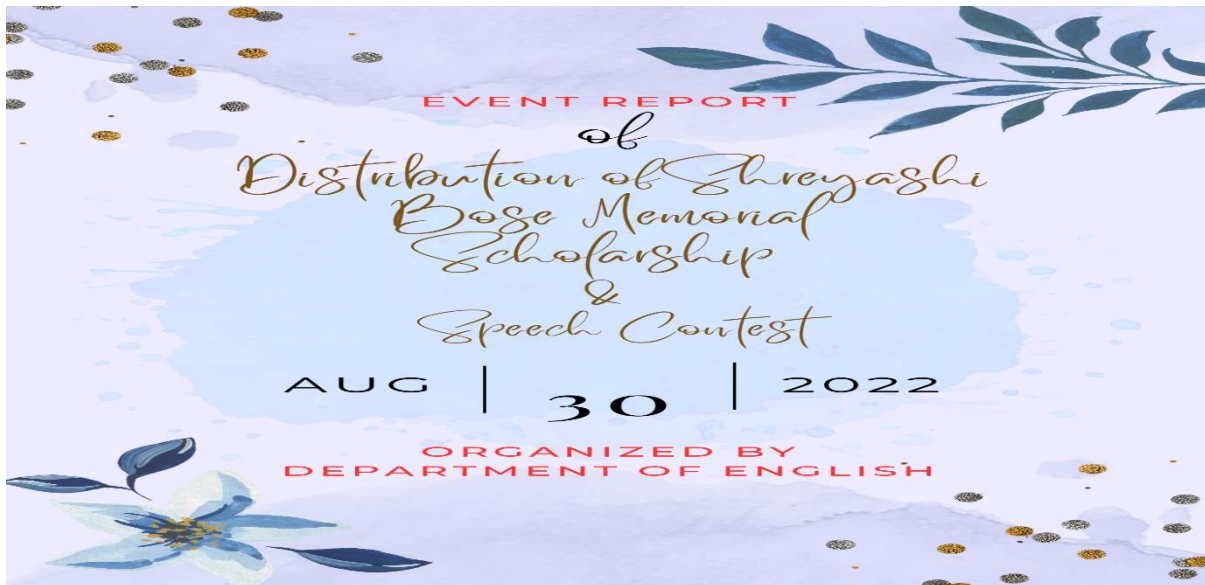 EVENT REPORT
of
Distribution of Shreyashi
Bose Memorial
Scholarship
&
Speech Contest
AUG | 30 | 2022
ORGANIZED BY
DEPARTMENT OF ENGLISH